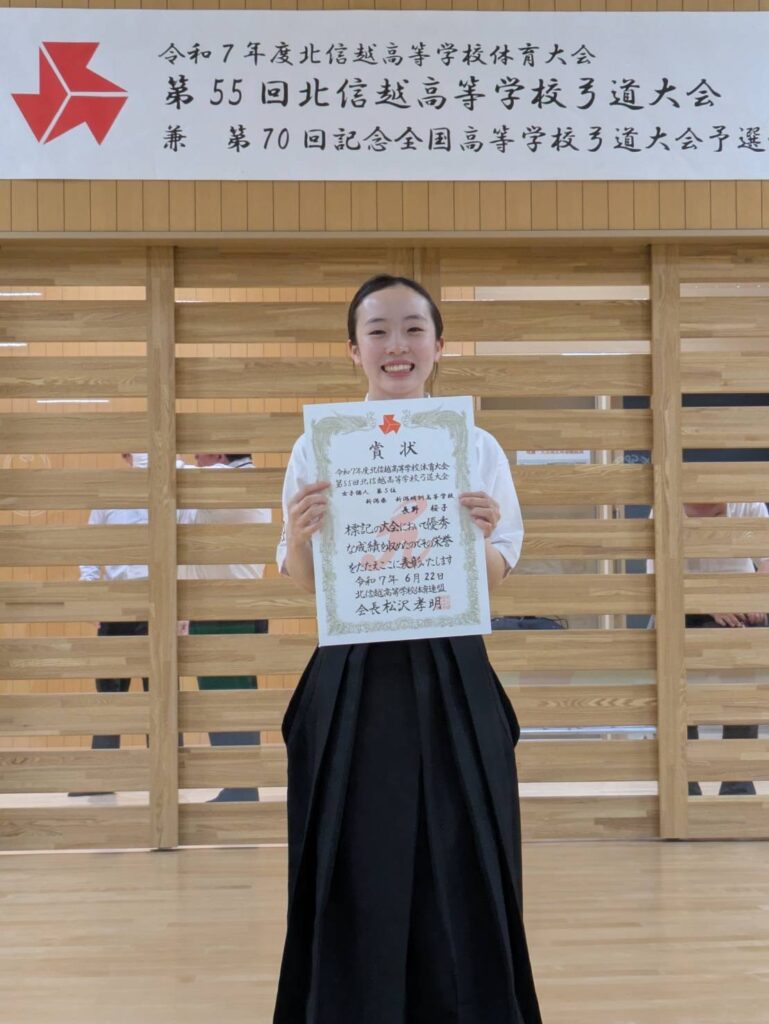 令和7年度北信越高等学校体育大会
第55回北信越高等学校弓道大会
兼 第70回記念全国高等学校弓道大会予選
賞状
令和7年度北信越高等学校体育大会
第55回北信越高等学校弓道大会
女子個人 第5位
新潟県 新潟明訓高等学校
長野 桜子
標記の大会において優秀
な成績を収めたのでその栄誉
をたたえここに表彰いたします
令和7年 6月22日
北信越高等学校体育連盟
会長 松沢孝明